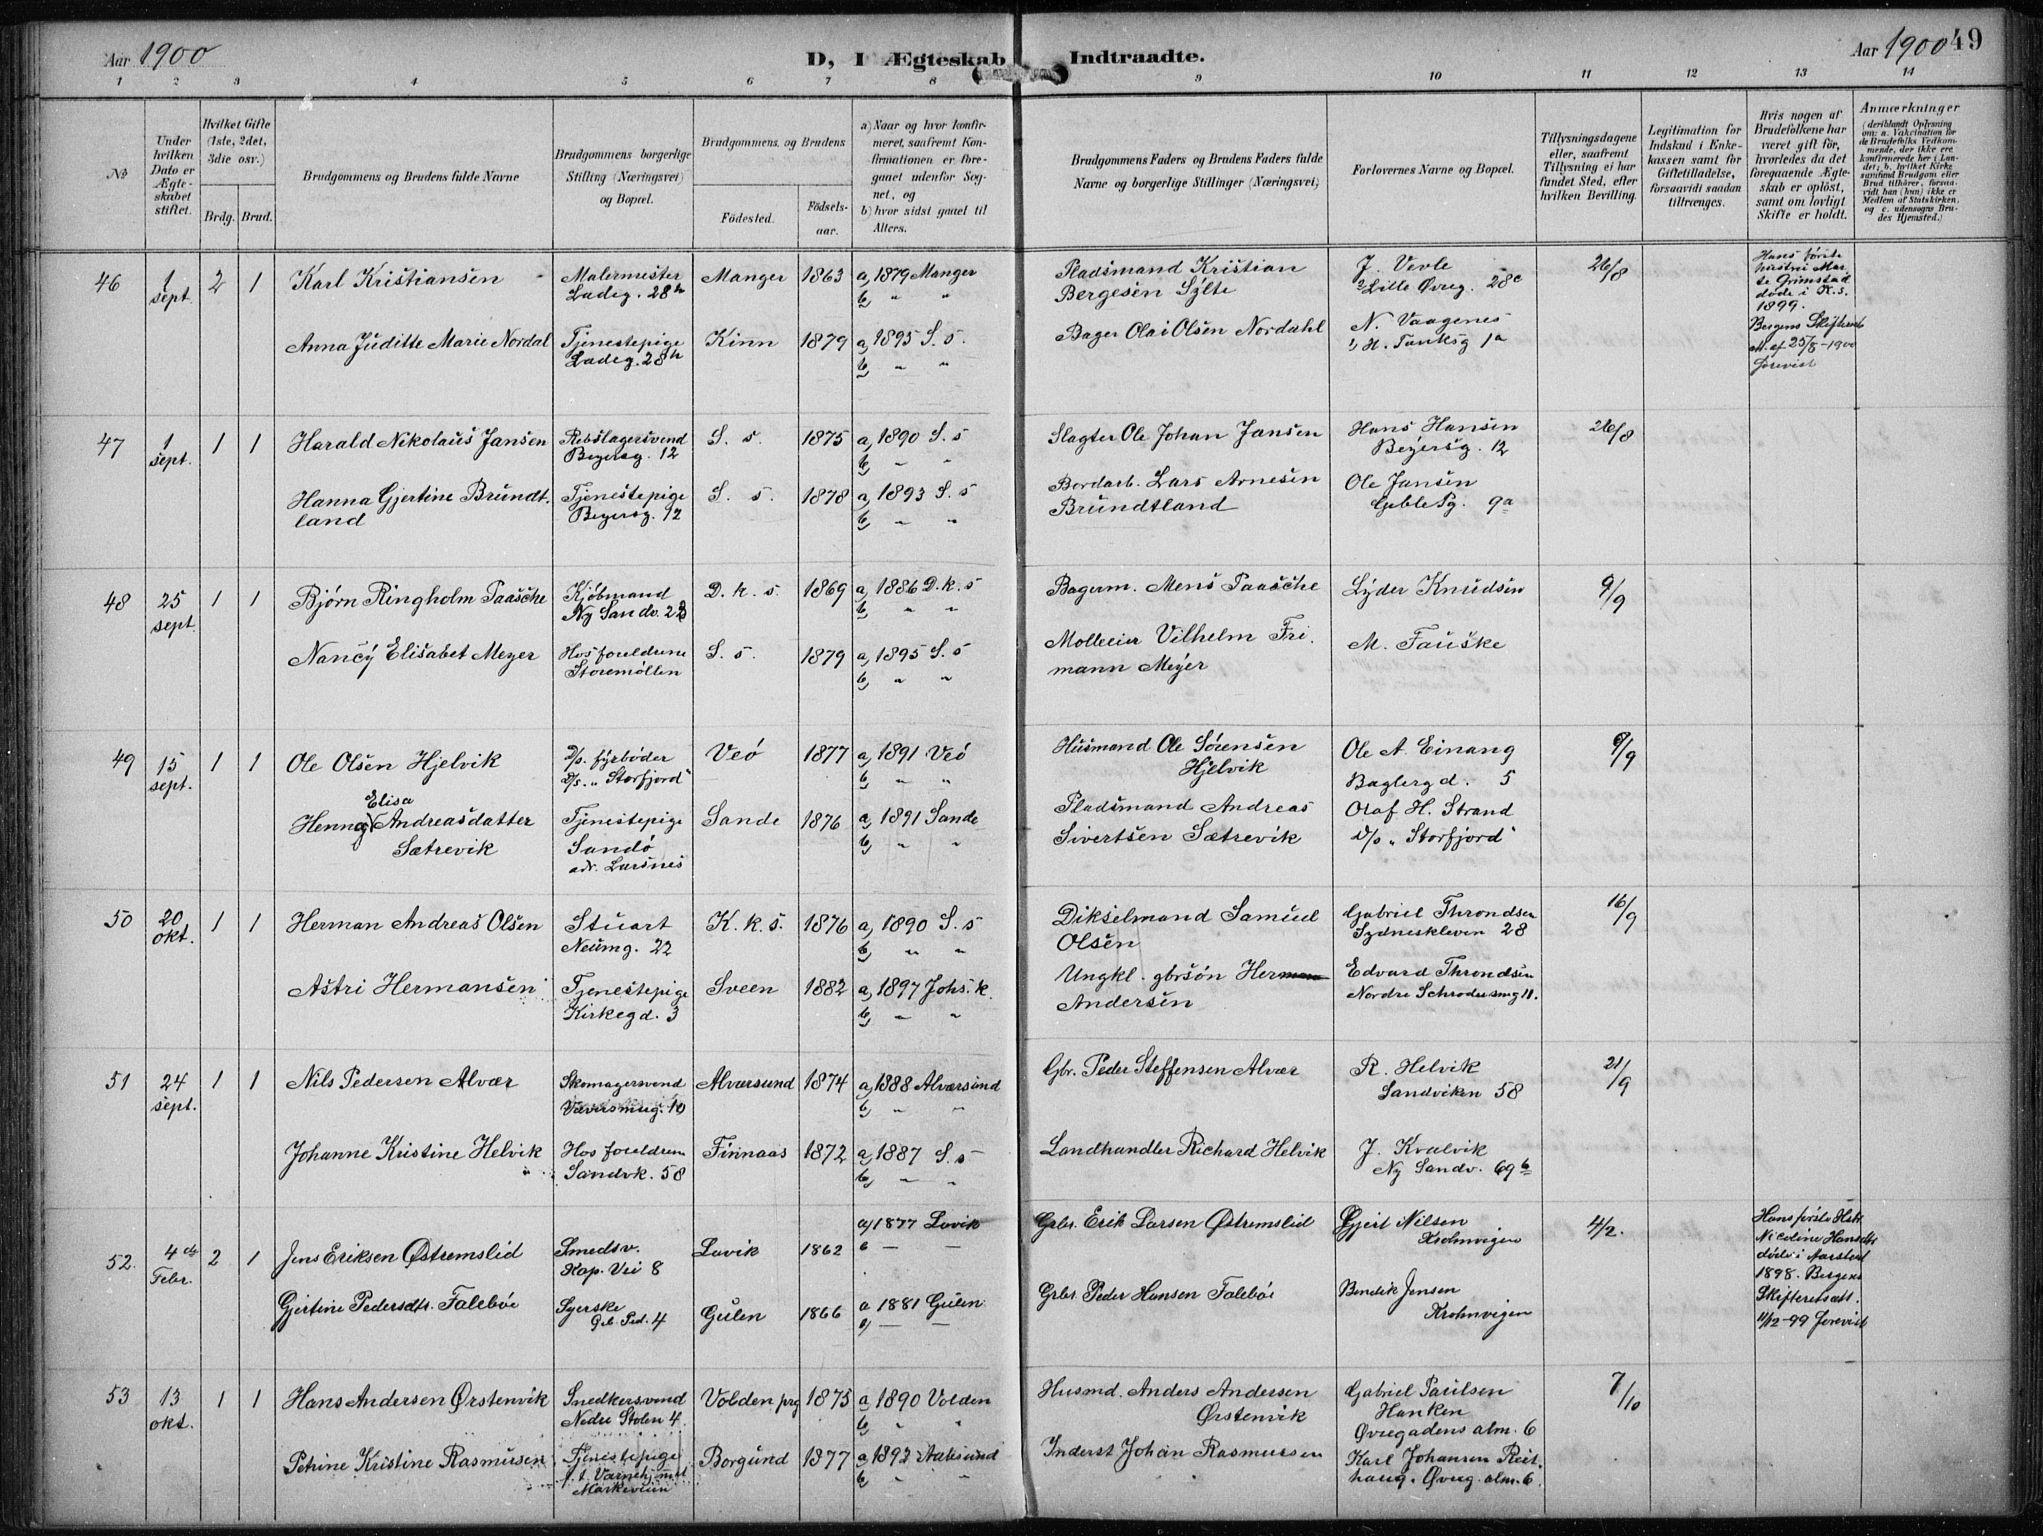 Aar 1900
D, I Ægteskab Indtraadte.
Aar 1900 49
1 2 3 4 5 6 7 8 9 10 11 12 13 14
No
Under hvilken Dato er Ægteskabet stiftet.
Hvilket Gifte (1ste, 2det, 3die osv.)
Brdg. Brud.
Brudgommens og Brudens fulde Navne
Brudgommens borgerlige Stilling (Næringsvei) og Bopæl.
Brudgommens og Brudens
Fødested. Fødselsaar.
a) Naar og hvor konfirmeret, saafremt Konfirmationen er foregaaet udenfor Sognet, og
b) hvor sidst gaaet til Alters.
Brudgommens Faders og Brudens Faders fulde Navne og borgerlige Stillinger (Næringsvei)
Forlovernes Navne og Bopæl.
Tillysningsdagene eller, saafremt Tillysning ei har fundet Sted, efter hvilken Bevilling.
Legitimation for Indskud i Enkekassen samt for Giftetilladelse, forsaavidt saadan tiltrænges.
Hvis nogen af Brudefolkene har været gift før, hvorledes da det foregaaende Ægteskab er opløst, samt om lovligt Skifte er holdt.
Anmærkninger
(deriblandt Oplysning om: a. Vakcination for de Brudefolks Vedkommende, der ikke ere konfirmerede her i Landet; b. hvilket Kirkesamfund Brudgom eller Brud tilhører, forsaavidt han (hun) ikke er Medlem af Statskirken, og c. udensogns Brudes Hjemsted.)
46 1 sept. 2 1 Karl Kristiansen Malermester Ladeg. 28h Manger 1863 a) 1879 Manger b) " " Pladsmand Kristian Bergesen Sylte J. Vevle Lille Øvreg. 28c 26/8 Hans første hustru Marte Grimstad døde i K.s. 1899. Bergens Skifterets att. af 25/8-1900 forevist
Anna Juditte Marie Nordal Tjenestepige Ladeg. 28h Kinn 1879 a) 1895 S. s. b) " " Bager Olai Olsen Nordahl N. Vaagenes H. Tanksg 1a
47 1 sept. 1 1 Harald Nikolaus Jansen Rebslagersvend Beyersg. 12 S. s. 1875 a) 1890 S. s b) " " Slagter Ole Johan Jansen Hans Hansen Beyersg. 12 26/8
Hanna Gjertine Brundtland Tjenestepige Beyersg. 12 S. s. 1878 a) 1893 S. s b) " " Bordarb. Lars Arnesen Brundtland Ole Jansen Geble Pg. 9a
48 25 sept. 1 1 Bjørn Ringholm Paasche Kjøbmand Ny Sandv. 23 D. k. s. 1869 a) 1886 D.k. s b) " " Bagerm. Mens Paasche Lyder Knudsen 9/9
Nancy Elisabet Meyer Hos foreldrene Storemøllen S. s. 1879 a) 1895 S. s b) " " Mølleeier Vilhelm Frimann Meyer M. Fauske
49 15 sept. 1 1 Ole Olsen Hjelvik D/s. fyrbøder D/s. "Storfjord" Veø 1877 a) 1891 Veø b) " " Husmand Ole Sørensen Hjelvik Ole A. Einang Baglergd. 5 9/9
Henna Elisa Andreasdatter Sætrevik Tjenestepige Sandø adr. Larsnes Sande 1876 a) 1891 Sande b) " " Pladsmand Andreas Sivertsen Sætrevik Olaf H. Strand D/s "Storfjord"
50 20 okt. 1 1 Herman Andreas Olsen Stuart Neumg. 22 K. k. s. 1876 a) 1890 S. s b) " " Dikselmand Samuel Olsen Gabriel Throndsen Sydneskleven 28 16/9
Astri Hermansen Tjenestepige Kirkegd. 3 Sveen 1882 a) 1897 Johs. k. b) " " Ungkl. gbrsøn Herman Andersen Edvard Throndsen Nordre Schrødersmg 11.
51 24 sept. 1 1 Nils Pedersen Alvær Skomagersvend Væversmug. 10 Alværsund 1874 a) 1888 Alværsund b) " " Gbr. Peder Steffensen Alvær R. Helvik Sandviken 58 21/9
Johanne Kristine Helvik Hos foreldrene Sandvk. 58 Finnaas 1872 a) 1887 S. s b) " " Landhandler Richard Helvik J. Kvalvik Ny Sandv. 69b
52. 4de Febr. 2 1 Jens Eriksen Østremslid Smedsv. Kap. Vei 8 Lavik 1862 a) 1877 Lavik b — — Grbr. Erik Larsen Østremslid Gjert Nilsen Krohnvigen 4/2. Hans første Hstr. Nicoline Hansdtr døde i Aarstad 1898. Bergens Skifteretsatt. 11/12-99 forevist
Gjertine Pedersdtr. Falebøe Syerske Geb. Ped. 4 Gulen 1866 a 1881 Gulen b) — — Grbr Peder Hansen Falebøe Bendik Jensen Krohnvigen
53 13 okt. 1 1 Hans Andersen Ørstenvik Snedkersvend Nedre Stolen 4. Volden prg 1875 a) 1890 Volden b) " " Husmd. Anders Andersen Ørstenvik Gabriel Paulsen Hanken Øvregadens alm. 6 7/10
Petrine Kristine Rasmussen Tjenestepige Borgund 1877 a) 1892 Aalesund b) " " Inderst Johan Rasmussen Karl Johansen Reithaug. Øvreg. alm. 6